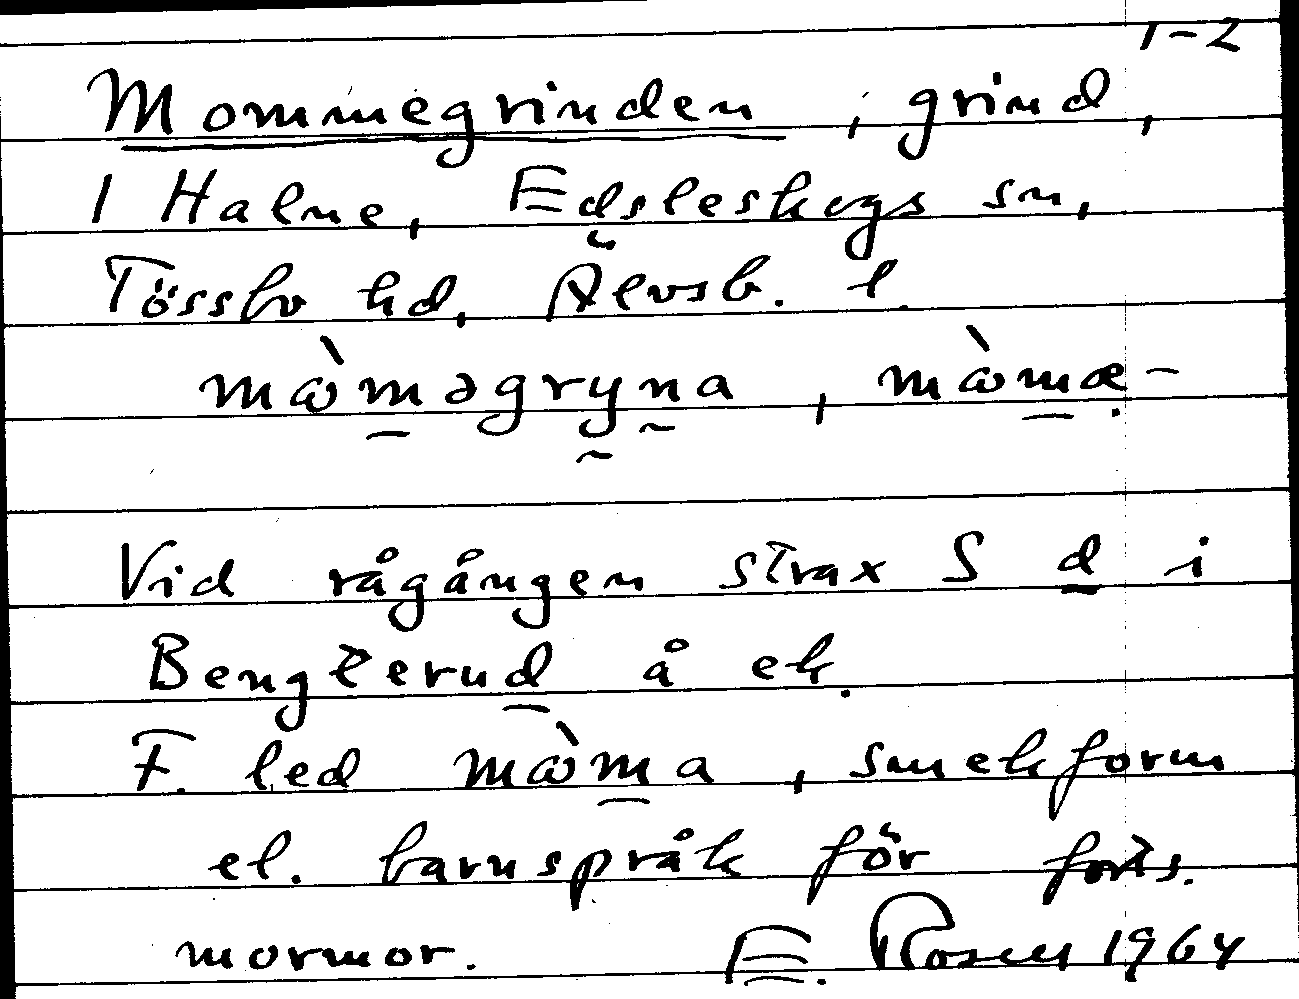 1-2
Mommegrinden, grind,
I Halne, Edsleskogs sn,
Tössbo hd, Älvsb. l.
mὼməgryna, mὼmæ-
Vid rågången strax S d i
Bengterud å ek.
F. led mὼma, smekform
el. barnspråk för
mormor. E. Rosell 1964